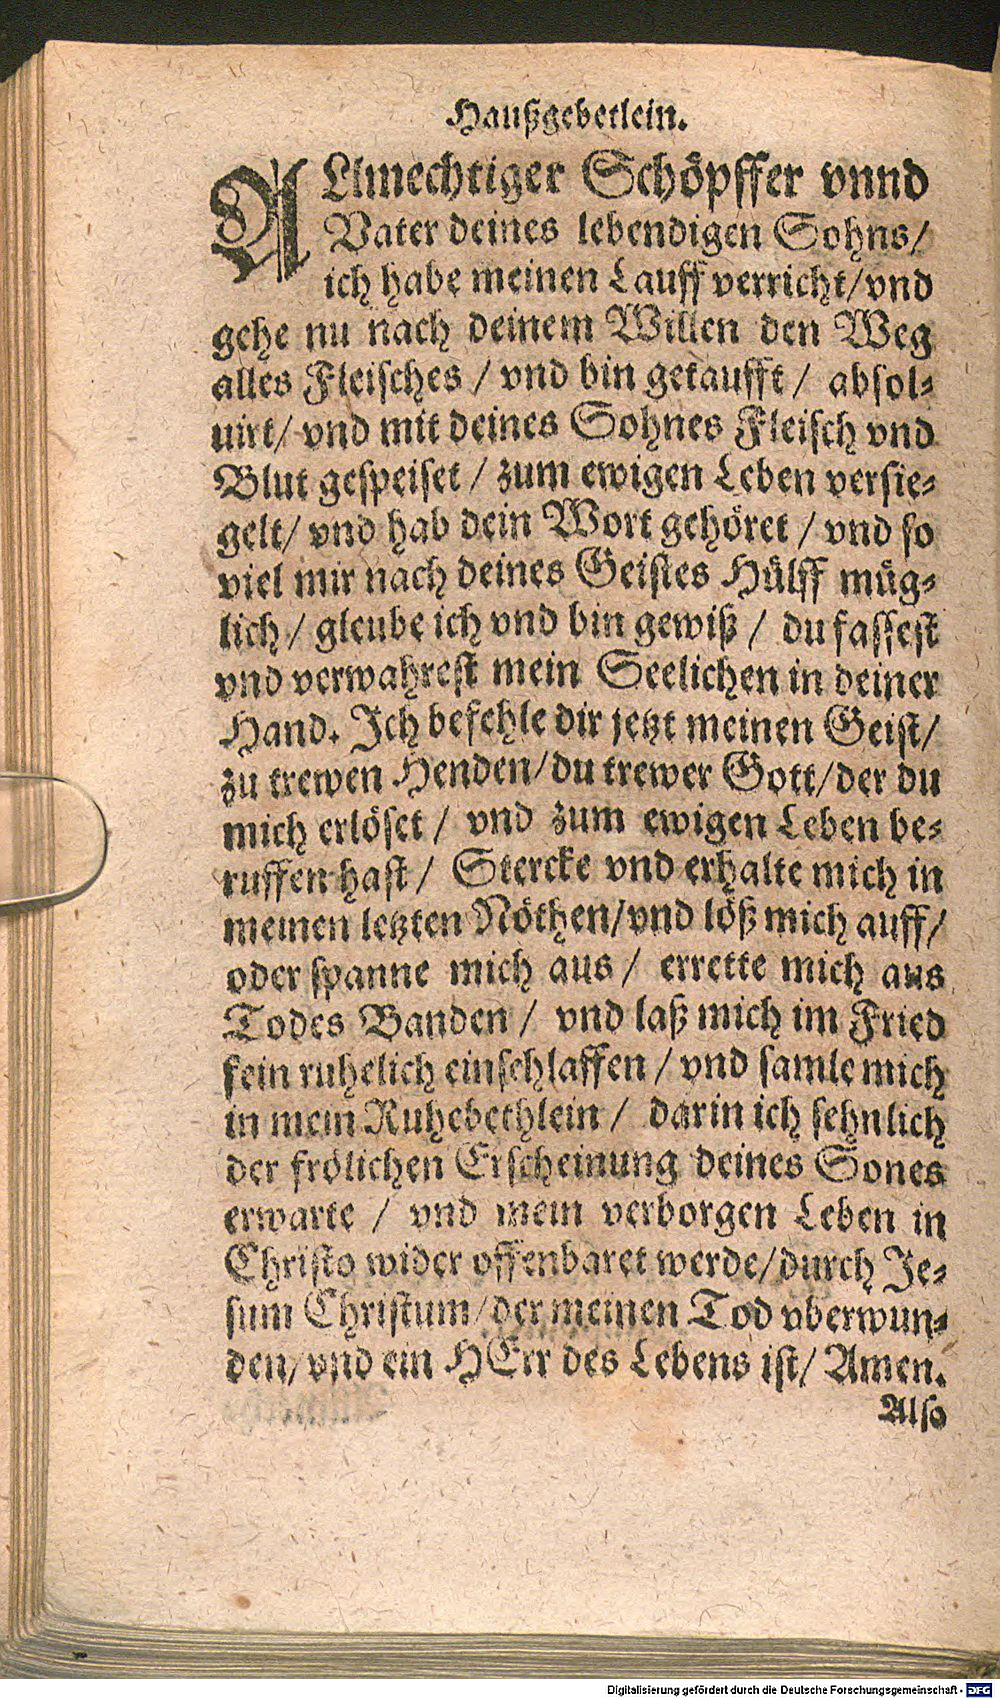 Haußgebetlein.
ALlmechtiger Schöpffer vnnd
Vater deines lebendigen Sohns/
ich habe meinen Lauff verricht/vnd
gehe nu nach deinem Willen den Weg
alles Fleisches / vnd bin getaufft / absol-
uirt/ vnd mit deines Sohnes Fleisch vnd
Blut gespeiset / zum ewigen Leben versie-
gelt/ vnd hab dein Wort gehöret / vnd so
viel mir nach deines Geistes Hülff müg-
lich / gleube ich vnd bin gewiß / du fassest
vnd verwahrest mein Seelichen in deiner
Hand. Ich befehle dir jetzt meinen Geist/
zu trewen Henden/du trewer Gott/der du
mich erlöset / vnd zum ewigen Leben be-
ruffen hast / Stercke vnd erhalte mich in
meinen letzten Nöthen/vnd löß mich auff/
oder spanne mich aus / errette mich aus
Todes Banden / vnd laß mich im Fried
fein ruhelich einschlaffen / vnd samle mich
in mein Ruhebethlein / darin ich sehnlich
der frölichen Erscheinung deines Sones
erwarte / vnd mein verborgen Leben in
Christo wider offenbaret werde/durch Je-
sum Christum/der meinen Tod vberwun-
den/vnd ein HErr des Lebens ist/ Amen.
Also
Digitalisierung gefördert durch die Deutsche Forschungsgemeinschaft - DFG